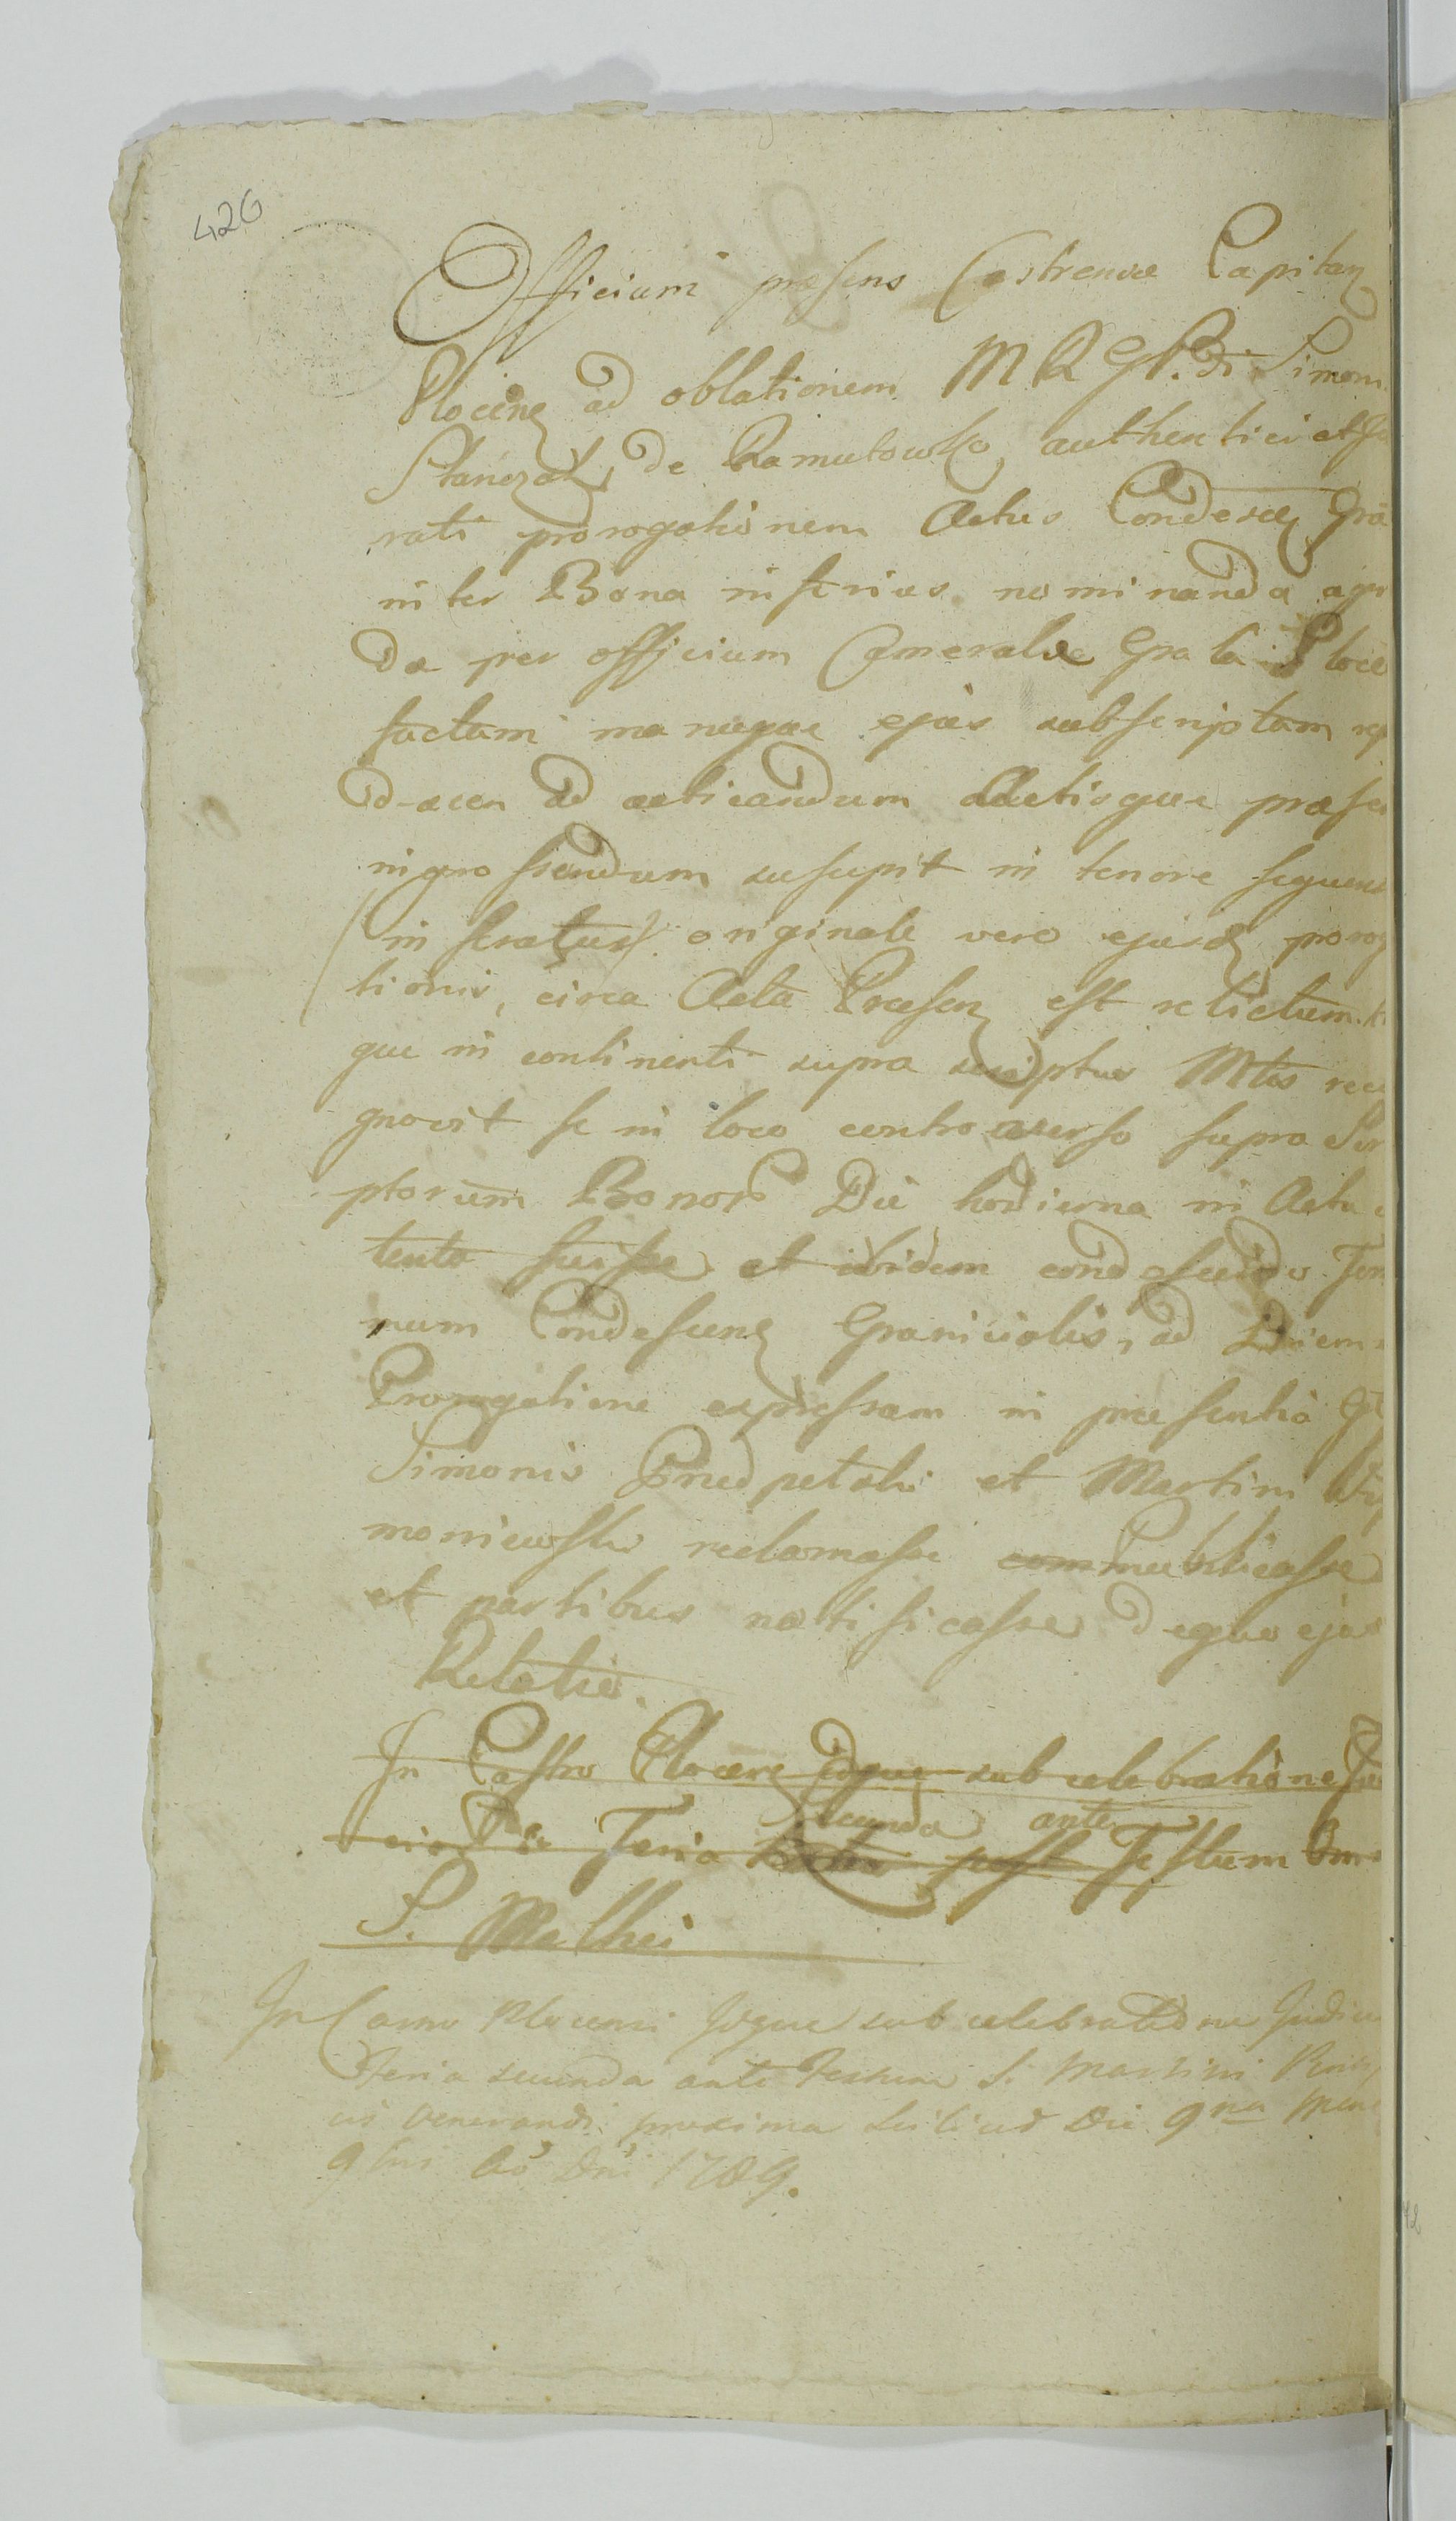 426
Officium præsens Castrense Capitan
Plocen ad oblationem MRGL Simon
de Ramutowko authentici et
rati prorogationem Actus Condesen Gra
inter Bona inferius nominanda agen
da per officium Camerale Gra la Ploce
factam manuque ejus subscriptam
ad acticandum Actisque præsen
ingrossandum suscepit in tenore sequen
originale vero ejusd prorog
tionis, circa Acta Præsen est relictum
que in continenti supra scriptus Mtis reco
gnovit se in loco controverso supra Scr
ptorum Bonor Die hodierna in Actu
tento fuisse et ibidem condescendo Ter
num Condescen Granicialis, ad Diem
Prorogatione expressam in præsentia
Simonis et Martini
moniewski reclamasse publicasse
et partibus notificasse deque ejus
Relatio.
In Castro Plocen Idque sub celebratione
Feria secunda ante post Festum
S. Mathei
In Plocensi Idque sub celebratione Judici
Feria secunda ante Festum S. Martini
venerandi proxima scilicet Die 9na Men
9bris Ao Dni 1789.